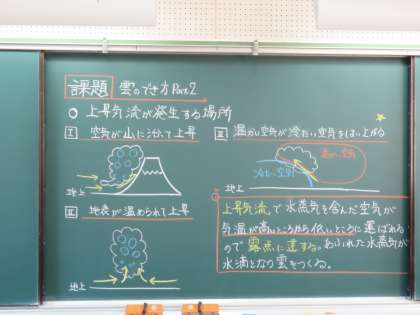 課題 雲のでき方Part.2
○ 上昇気流が発生する場所
I 空気が山に沿って上昇
地上
II 地表が温められて上昇
地上
III 温かい空気が冷たい空気をはい上がる
温かい空気
冷たい空気
地上
上昇気流で水蒸気を含んだ空気が
気温が高いところから低いところに運ばれる
ので露点に達する。あふれた水蒸気が
水滴となり雲をつくる。